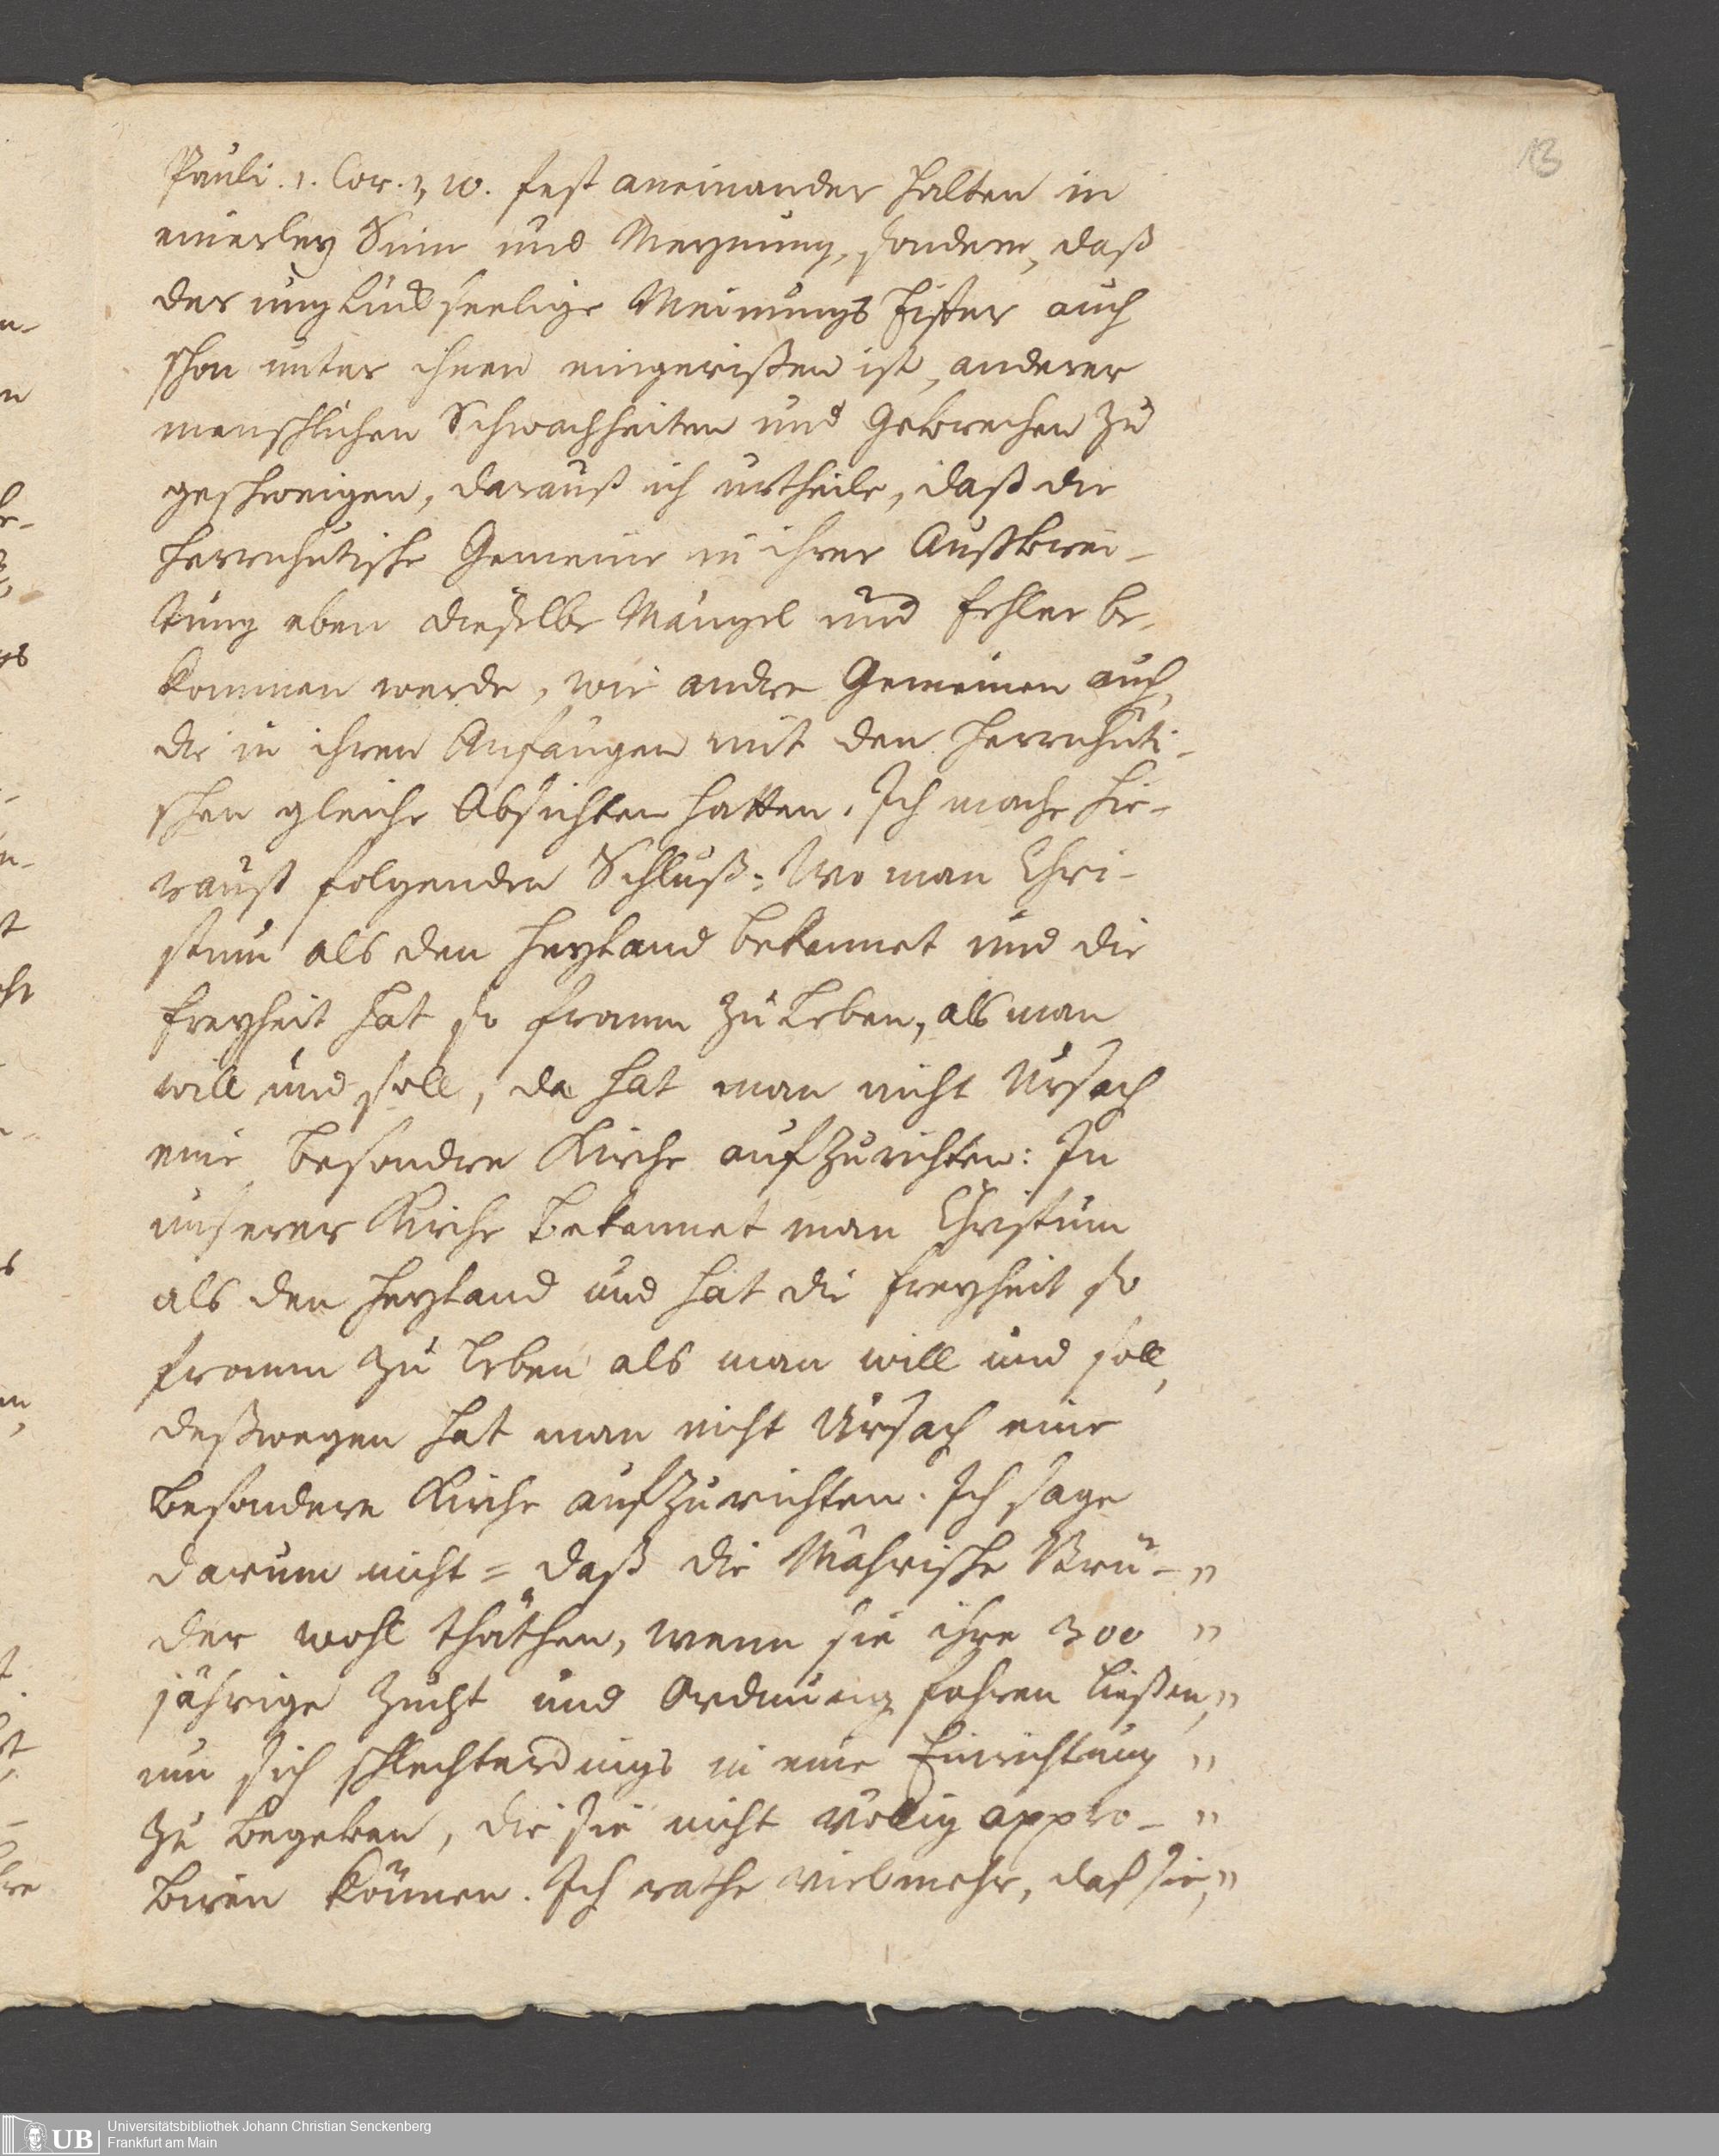 13
Pauli. 1. Cor. 3, 10. fest aneinander halten in
einerley Sinn und Meynung, sondern, daß
der unglückseelige Meinungs Eiffer auch
schon unter ihnen eingerißen ist, anderer
menschlichen Schwachheiten und Gebrechen zu
geschweigen, darauß ich urtheile, daß die
Herrnhutische Gemeine in ihrer Außbrei-
tung eben dieselbe Mängel und Fehler be-
kommen werde, wie andre Gemeinen auch,
die in ihren Anfängen mit den Herrnhuti-
schen gleiche Absichten hatten. Ich mache hie-
rauß folgenden Schluß: Wo man Chri-
stum als den Heyland bekennet und die
Freyheit hat so fromm zu leben, als man
will und soll, da hat man nicht Ursach
eine besondre Kirche aufzurichten: In
unserer Kirche bekennet man Christum
als den Heyland und hat die Freyheit so
fromm zu leben als man will und soll,
deßwegen hat man nicht Ursach eine
besondere Kirche aufzurichten. Ich sage
darum nicht = daß die Mährische Brü- „
der wohl thäthen, wenn sie ihre 300 „
jährige Zucht und Ordnung fahren ließen, „
um sich schlechterdings in eine Einrichtung „
zu begeben, die sie nicht völlig appro- „
biren können. Ich rathe vielmehr, daß sie, „
UB Universitätsbibliothek Johann Christian Senckenberg
Frankfurt am Main